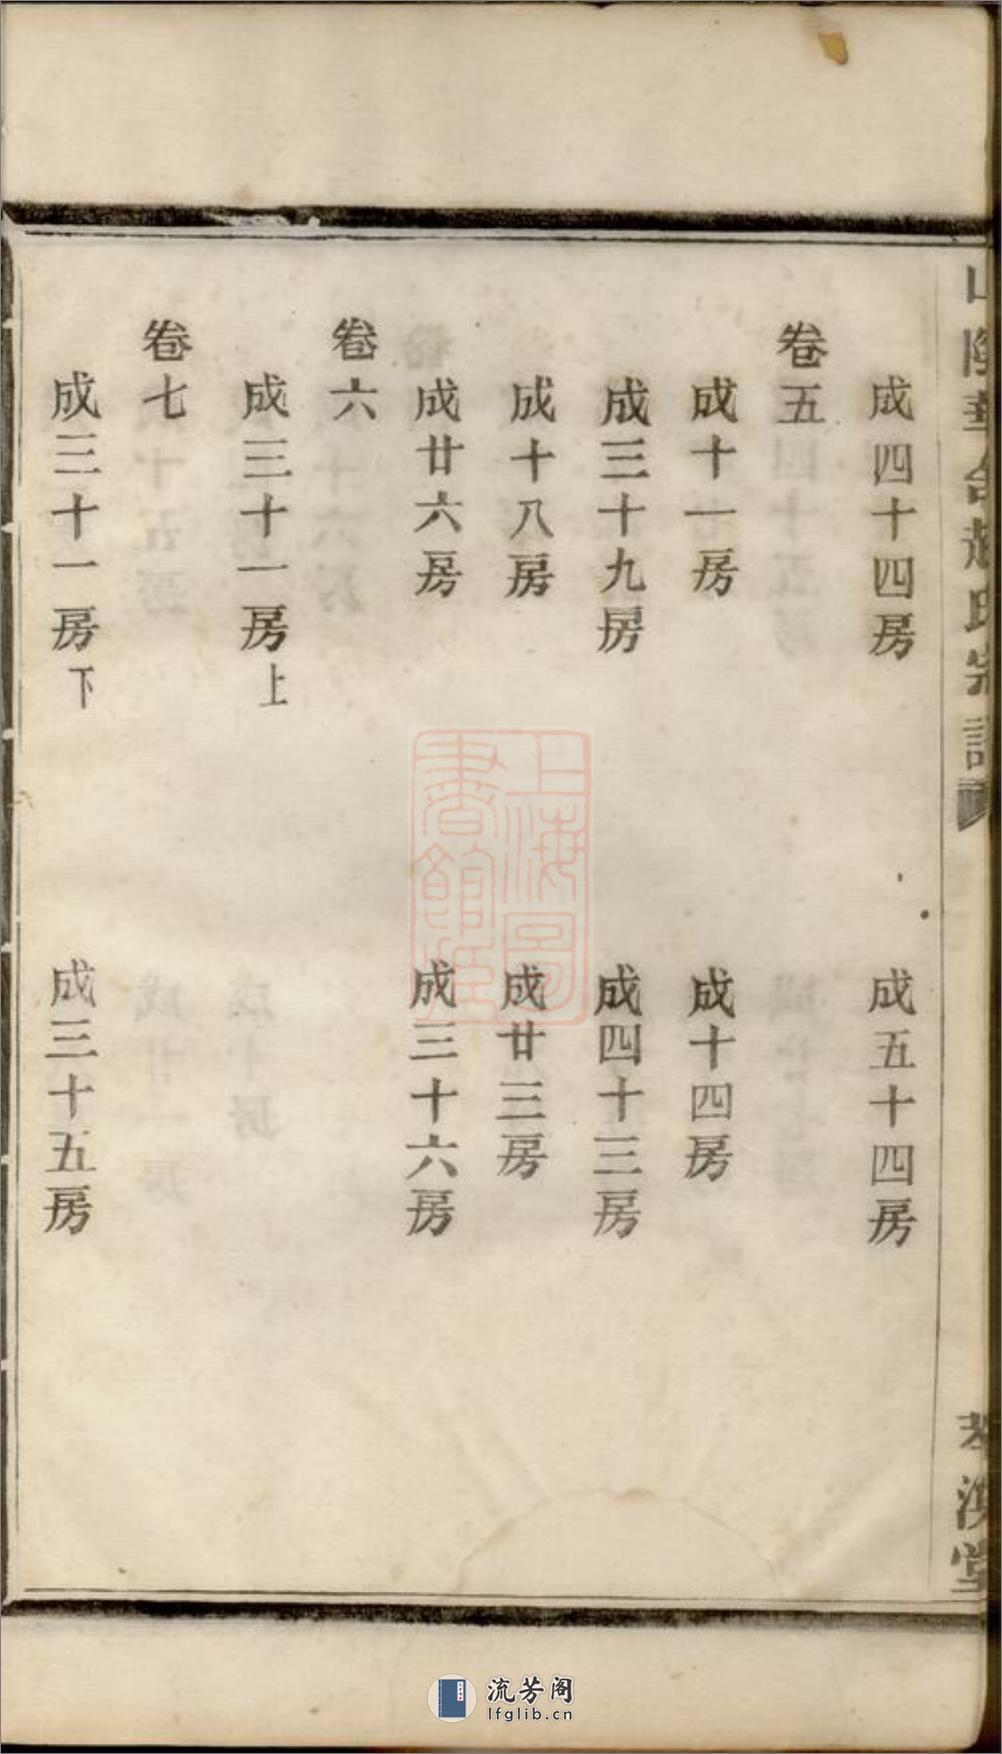 成四十四房　成五十四房
卷五
成十一房　成十四房
成三十九房　成四十三房
成十八房　成廿三房
成廿六房　成三十六房
卷六
成三十一房上
卷七
成三十一房下　成三十五房
上海圖書館藏
流芳阁
lfglib.cn